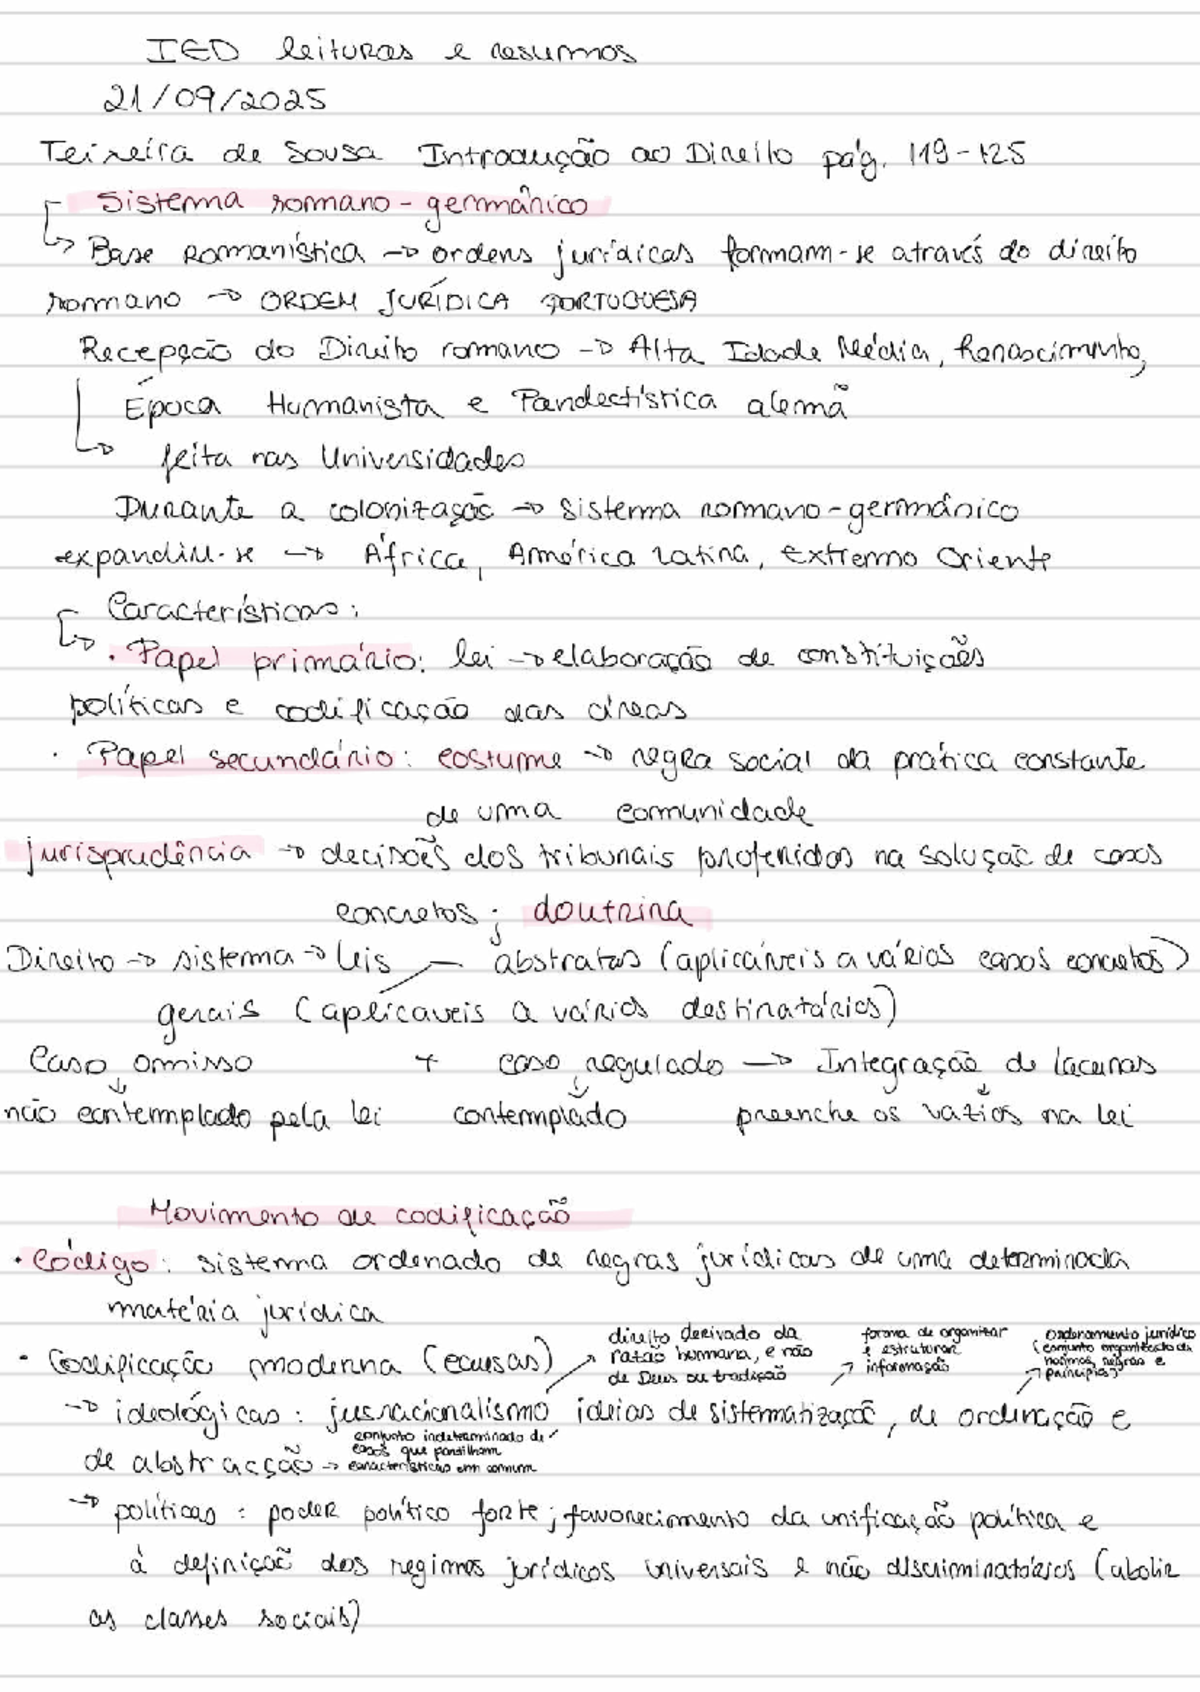 IED leituras e resumos
21/09/2025
Teixeira de Sousa Introdução ao Direito pág. 119-125
Sistema romano-germânico
↳ Base Romanística → ordens jurídicas formam-se através do direito
romano → ORDEM JURÍDICA PORTUGUESA
Recepção do Direito romano → Alta Idade Média, Renascimento,
Época Humanista e Pandectística alemã
↳ feita nas Universidades
Durante a colonização → sistema romano-germânico
expandiu-se → África, América Latina, Extremo Oriente
Características:
↳ · Papel primário: lei → elaboração de constituições
políticas e codificação das áreas
· Papel secundário: costume → regra social da prática constante
de uma comunidade
jurisprudência → decisões dos tribunais proferidos na solução de casos
concretos; doutrina
Direito → sistema → leis — abstratas (aplicáveis a vários casos concretos)
gerais (aplicaveis a vários destinatários)
Caso omisso + caso regulado → Integração de lacunas
não contemplado pela lei contemplado preenche os vazios na lei
Movimento de codificação
· Código: sistema ordenado de regras jurídicas de uma determinada
matéria jurídica
direito derivado da
razão humana, e não
de Deus ou tradição
forma de organizar
e estruturar
informação
ordenamento jurídico
(conjunto organizado de
normas, regras e
princípios)
· Codificação moderna (causas)
→ ideológicas: jusracionalismo ideias de sistematização, de ordenação e
conjunto indeterminado de
casos que partilham
características em comum
de abstracção →
→ políticas: poder político forte; favorecimento da unificação política e
à definição dos regimes jurídicos universais e não discriminatórios (abolir
as classes sociais)